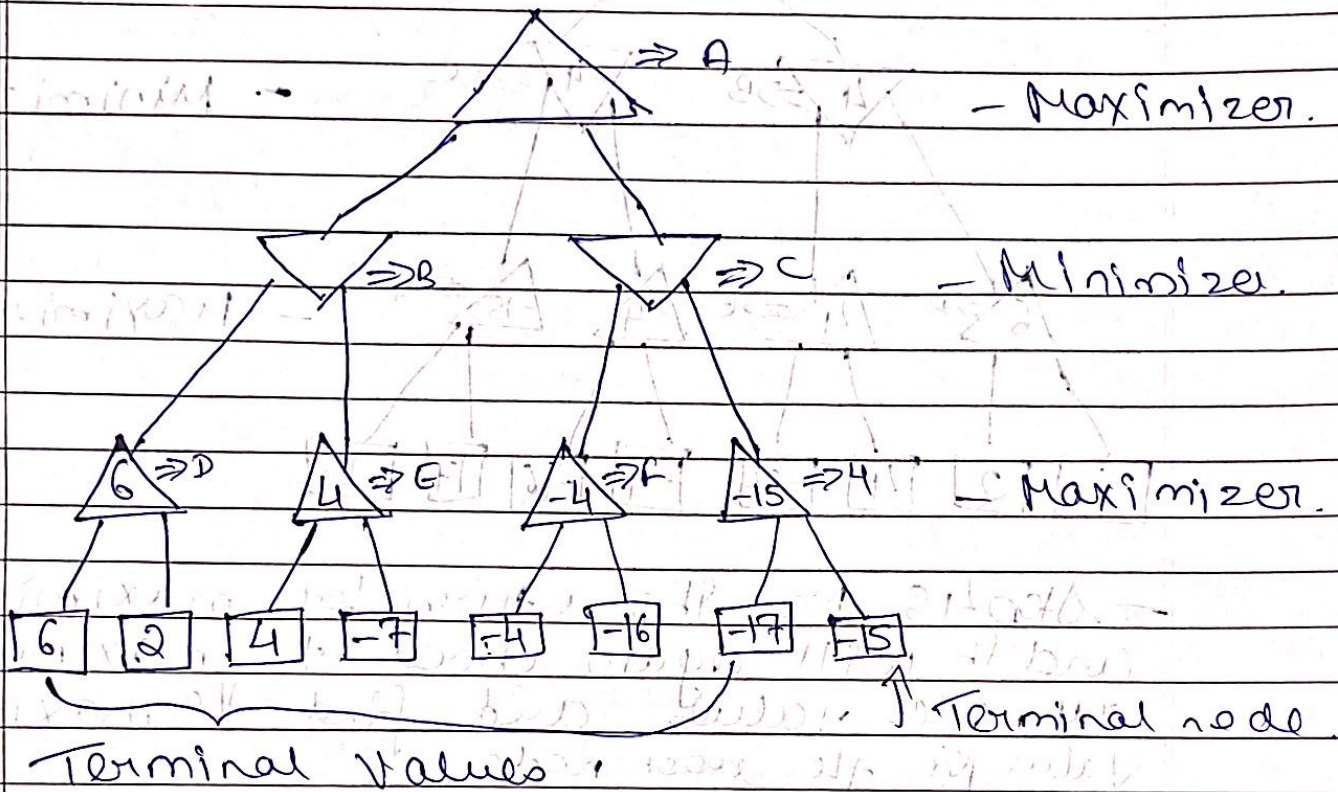 ⇒ A
- Maximizer.
⇒ B
⇒ C
- Minimizer.
6 ⇒ D
4 ⇒ E
-4 ⇒ F
-15 ⇒ 4
- Maximizer.
6 2 4 -7 -4 -16 -17 -15
↑ Terminal node
Terminal Values.